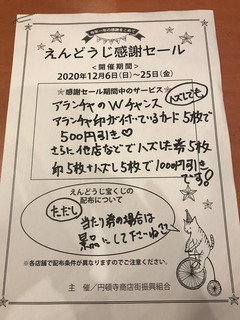 今年一年の感謝をこめて
えんどうじ感謝セール
<開催期間>
2020年12月6日(日)～25日(金)
★感謝セール期間中のサービス★
アランチャのWチャンス
ハズレでも
アランチャ印がイ寸いているカード5枚で
500円引き♡
さらに他店などでハズレた券5枚
印5枚+ハズレ5枚で1000円引き
です!
えんどうじ宝くじの
配布について
ただし
当たり券の場合は
景品にして下さーね!!
※各店舗で配布条件が異なりますのでご注意ください。
主 催/円頓寺商店街振興組合